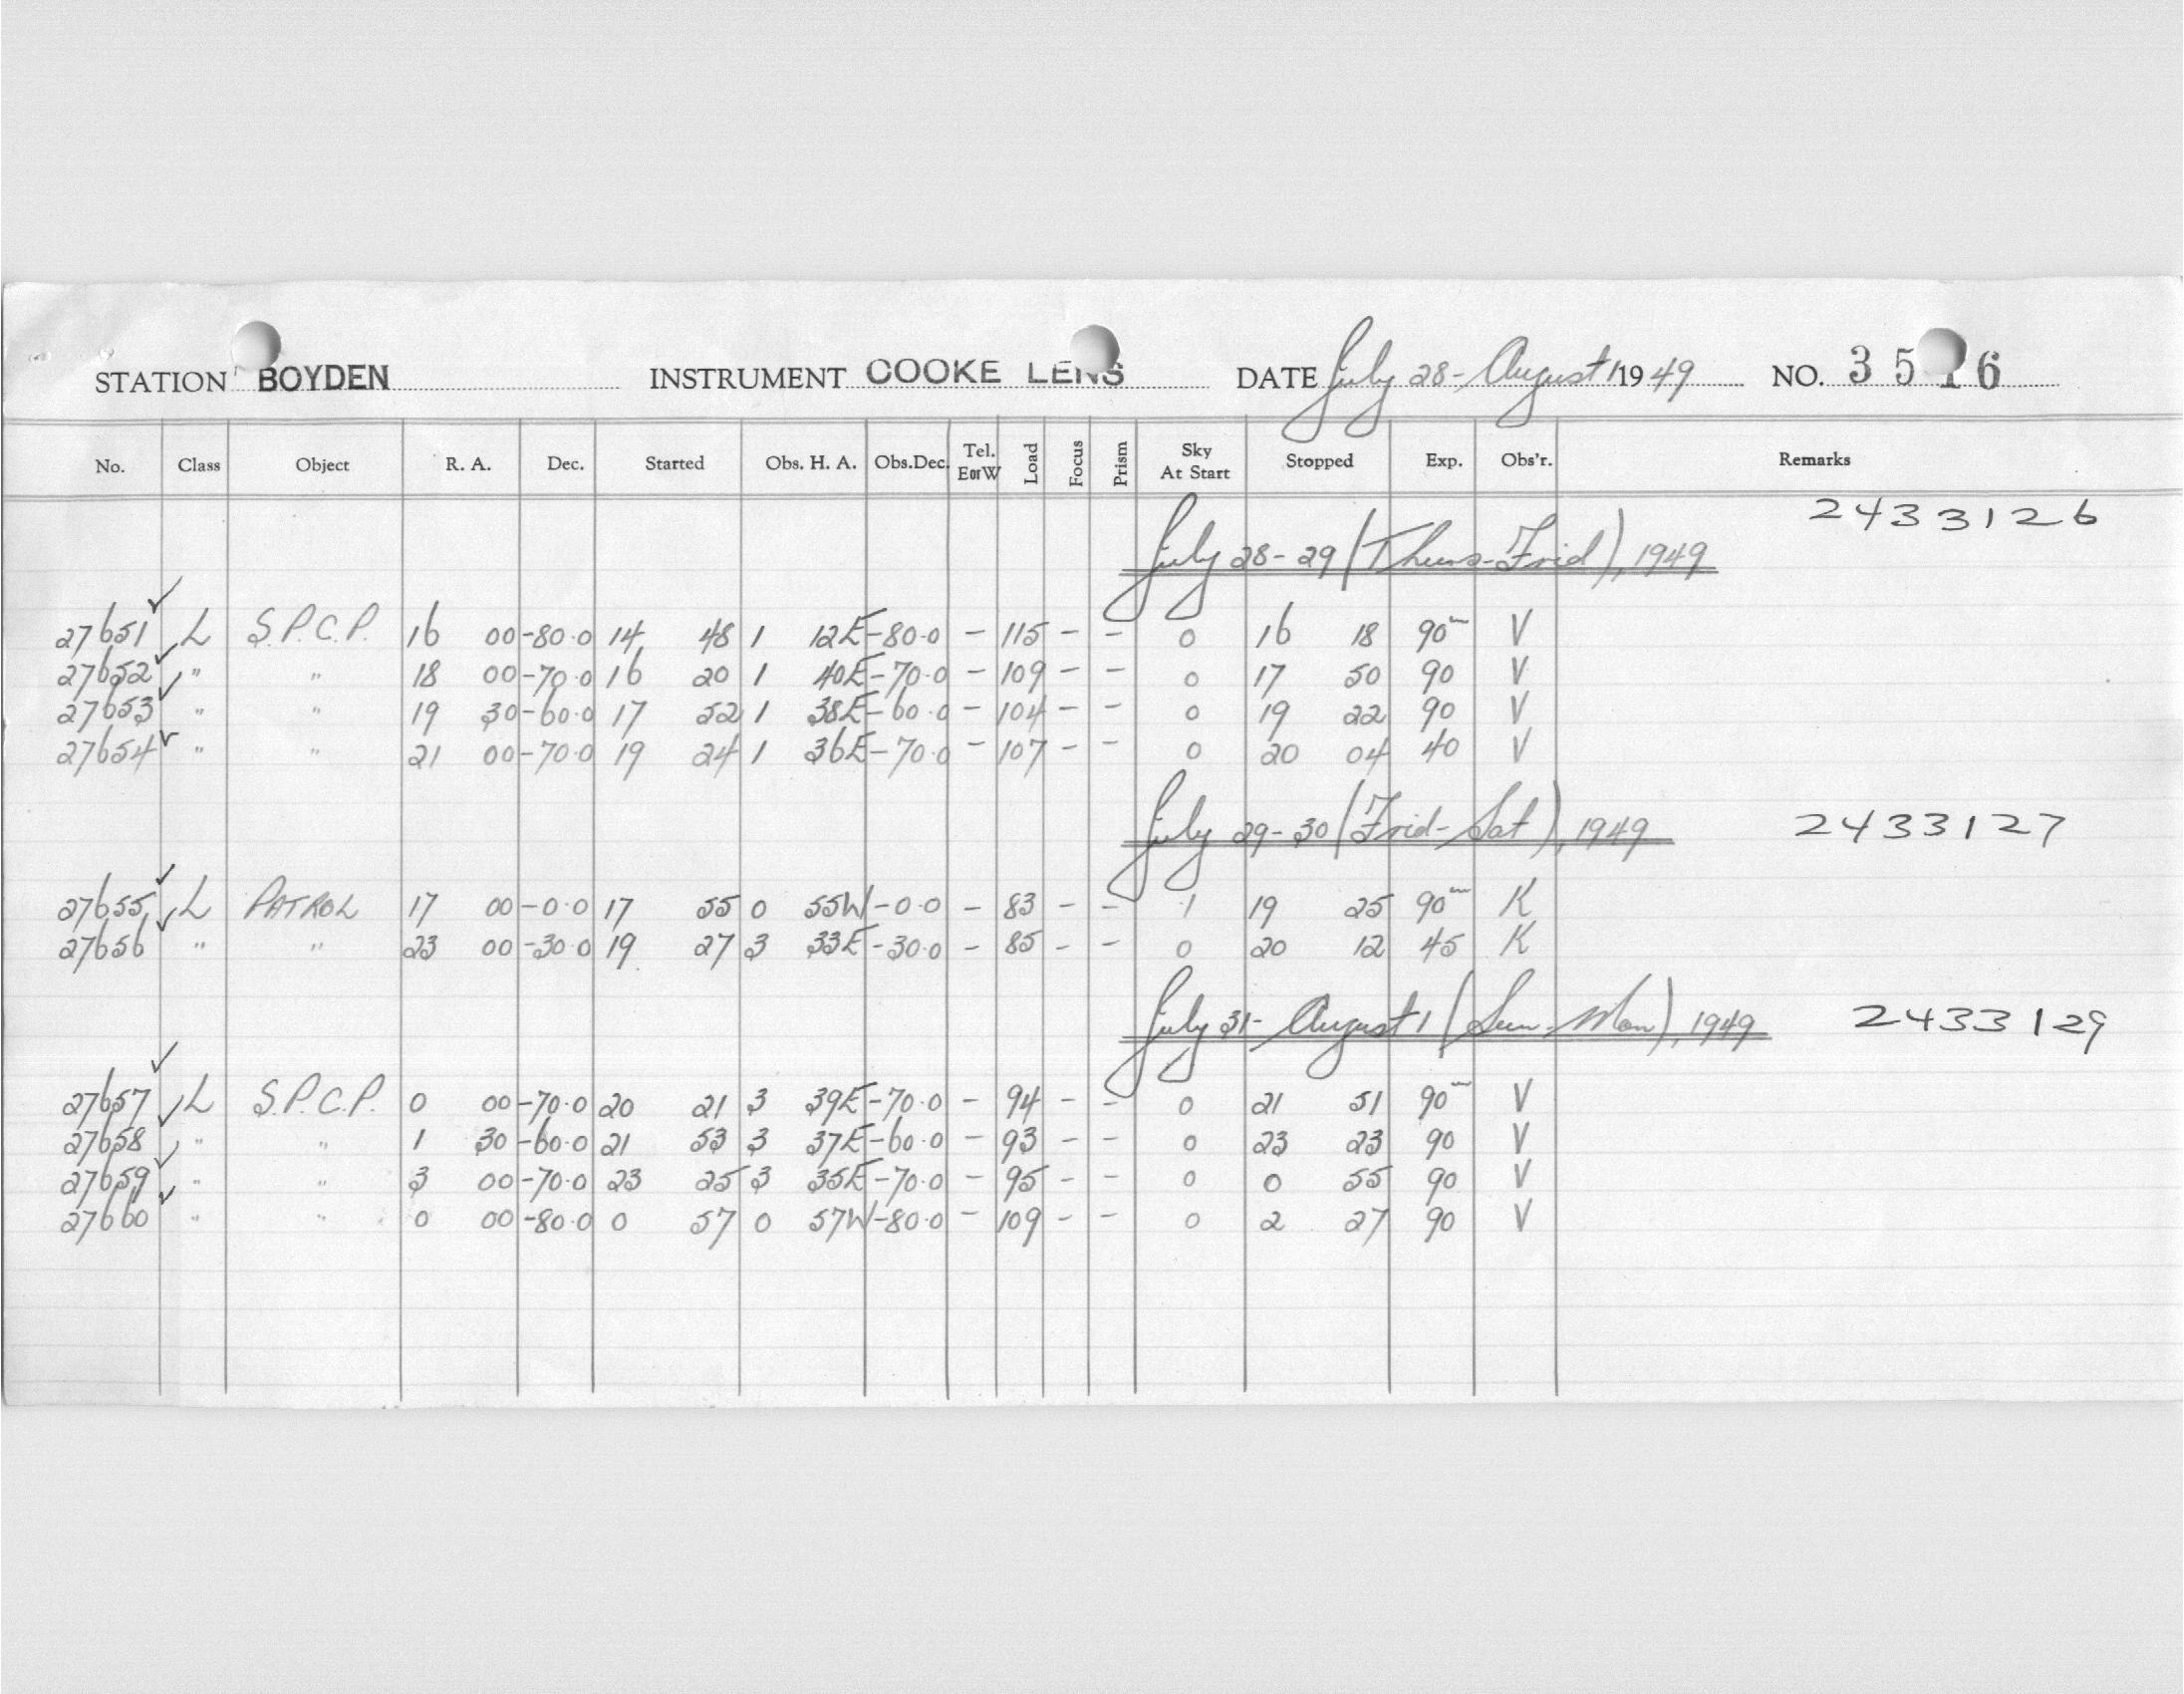 STATION BOYDEN INSTRUMENT COOKE LENS DATE July 28-August 1 1949 NO. 35 16
No. Class Object R. A. Dec. Started Obs. H. A. Obs.Dec. Tel. EorW Load Focus Prism Sky At Start Stopped Exp. Obs'r. Remarks
2433126
July 28-29 (Thurs-Frid), 1949
27651 ✓ L S.P.C.P. 16 00 -80.0 14 48 1 12E -80.0 - 115 - - 0 16 18 90m V
27652 ✓ " " 18 00 -70.0 16 20 1 40E -70.0 - 109 - - 0 17 50 90 V
27653 ✓ " " 19 30 -60.0 17 52 1 38E -60.0 - 104 - - 0 19 22 90 V
27654 ✓ " " 21 00 -70.0 19 24 1 36E -70.0 - 107 - - 0 20 04 40 V
July 29-30 (Frid-Sat), 1949 2433127
27655 ✓ L PATROL 17 00 -0.0 17 55 0 55W -0.0 - 83 - - 1 19 25 90m K
27656 ✓ " " 23 00 -30.0 19 27 3 33E -30.0 - 85 - - 0 20 12 45 K
July 31-August 1 (Sun-Mon), 1949 2433129
27657 ✓ L S.P.C.P. 0 00 -70.0 20 21 3 39E -70.0 - 94 - - 0 21 51 90m V
27658 ✓ " " 1 30 -60.0 21 53 3 37E -60.0 - 93 - - 0 23 23 90 V
27659 ✓ " " 3 00 -70.0 23 25 3 35E -70.0 - 95 - - 0 0 55 90 V
27660 ✓ " " 0 00 -80.0 0 57 0 57W -80.0 - 109 - - 0 2 27 90 V